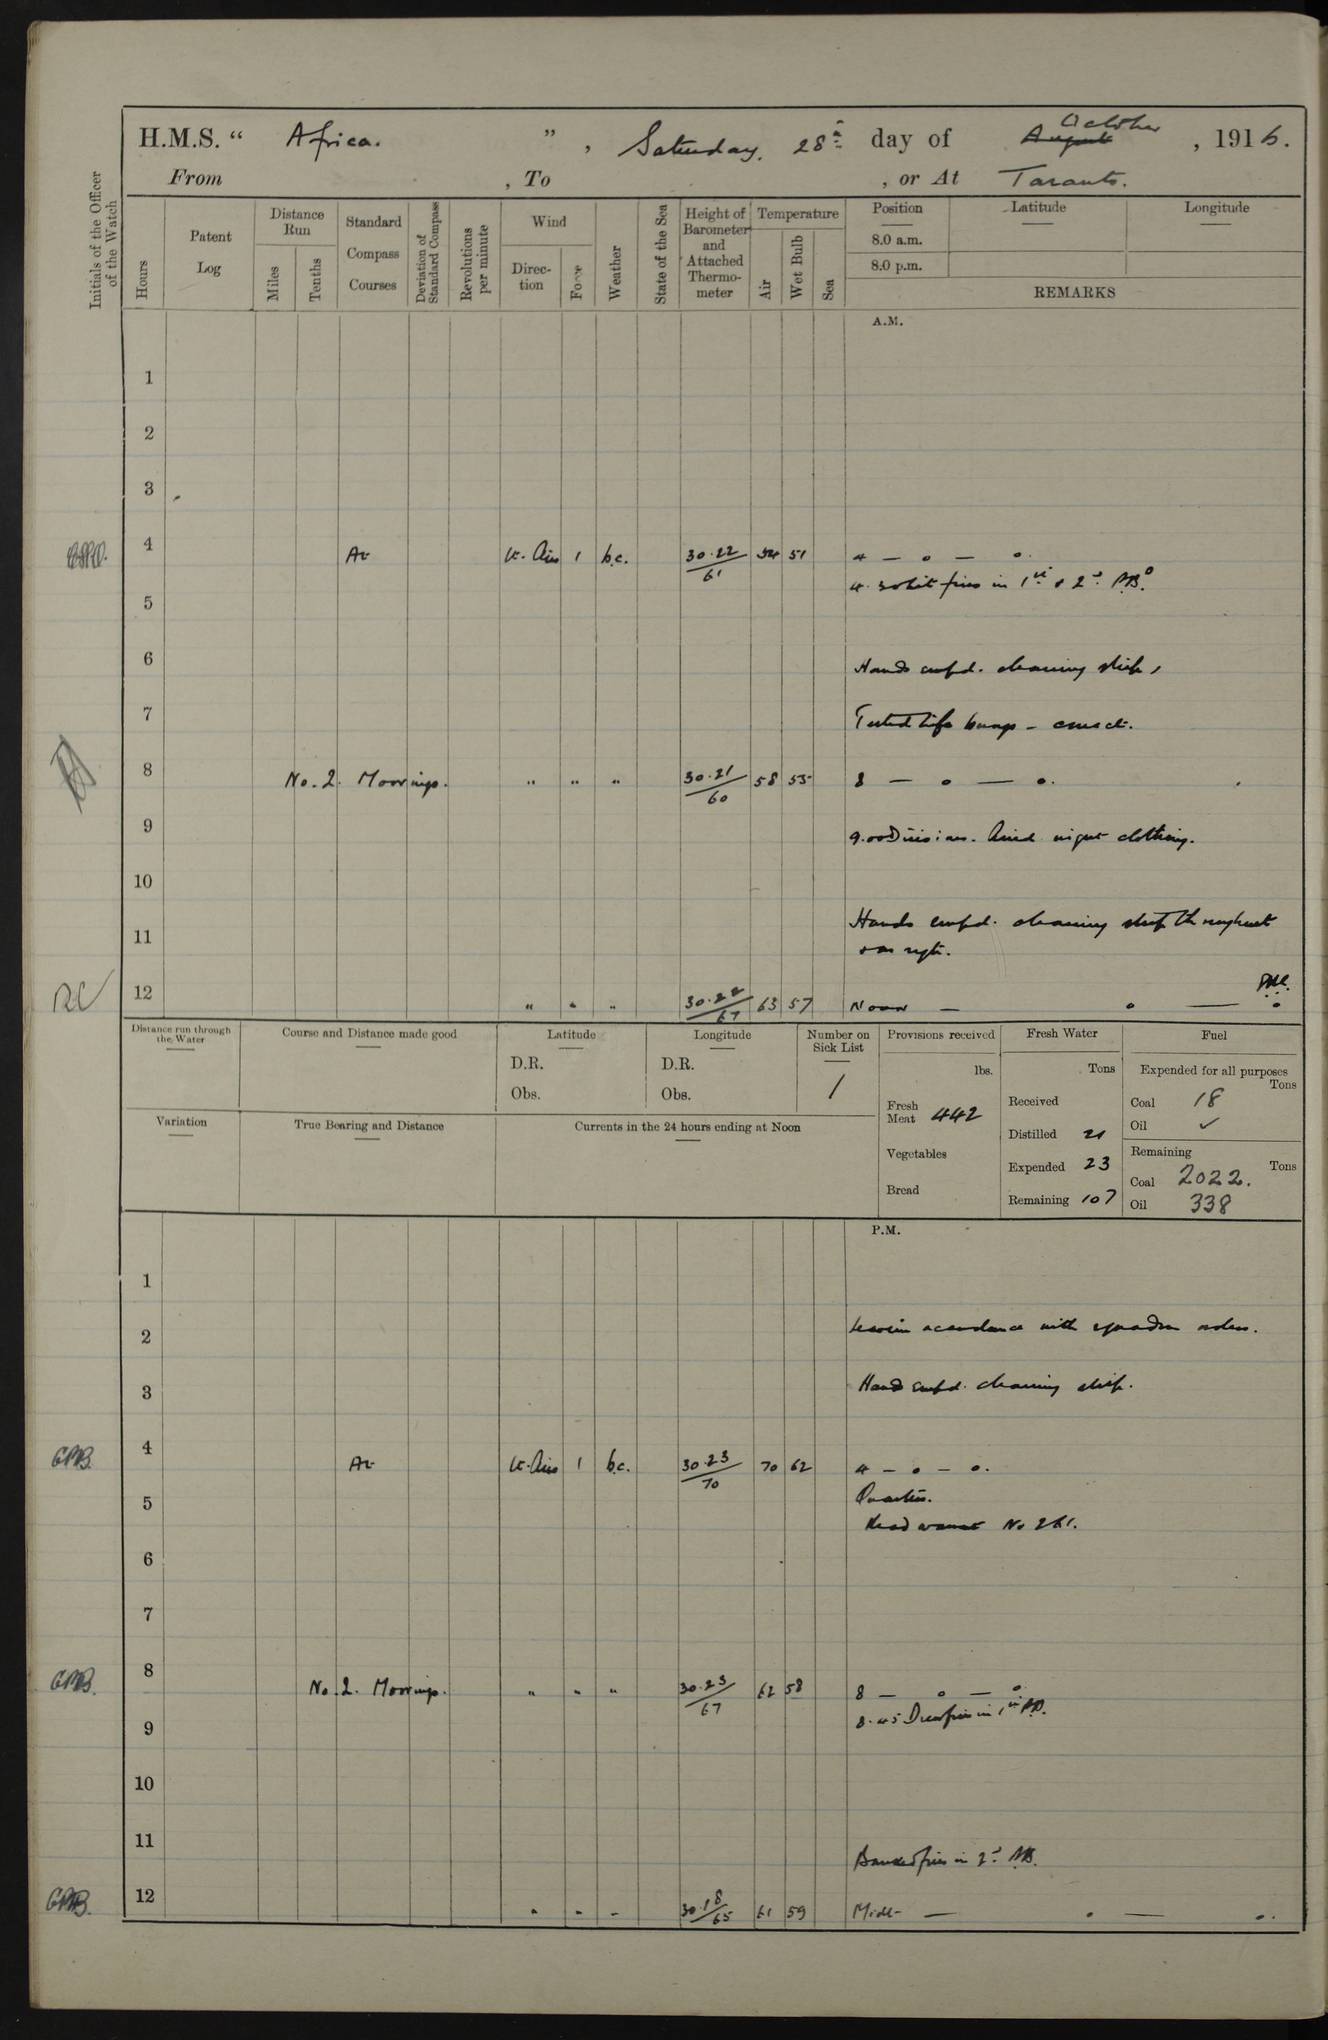 H.M.S. “ Africa. ” , Saturday. 28th day of August October , 1916.
From , To , or At Taranto.
Initials of the Officer of the Watch
Hours
Patent Log
Distance Run
Miles
Tenths
Standard Compass Courses
Deviation of Standard Compass
Revolutions per minute
Wind
Direction
Force
Weather
State of the Sea
Height of Barometer and Attached Thermometer
Temperature
Air
Wet Bulb
Sea
Position
8.0 a.m.
8.0 p.m.
Latitude
Longitude
REMARKS
A.M.
1
2
3
4 At Lt. Airs 1 b.c. 30.22/61 54 51 4 — o — o.
4.30 Lit fires in 1st & 2nd P.B.o
5
6 Hands empd. cleaning ship,
7 Tested life buoys – correct.
8 No. 2. Moorings. " " " 30.21/60 58 55 8 — o — o.
9 9.00 Divisions. Aired night clothing.
10
Hands empd. cleaning ship throughout
11
12 " " " 30.22/67 63 57 Noon — o — o
Distance run through the Water
Course and Distance made good
Latitude
D.R.
Obs.
Longitude
D.R.
Obs.
Number on Sick List
1
Provisions received
lbs.
Fresh Meat 442
Vegetables
Bread
Fresh Water
Tons
Received
Distilled 21
Expended 23
Remaining 107
Fuel
Expended for all purposes
Tons
Coal 18
Oil ✓
Remaining
Tons
Coal 2022.
Oil 338
Variation
True Bearing and Distance
Currents in the 24 hours ending at Noon
P.M.
1
2 Leave in accordance with squadron orders.
3 Hands empd. cleaning ship.
GMB. 4 At Lt. Airs 1 b.c. 30.23/70 70 62 4 – o – o.
Quarters.
5 Read warrant No 261.
6
7
GMB. 8 No. 2. Moorings. " " " 30.23/67 62 58 8 — o — o
8.45 Drew fires in 1st P.B.
9
10
11 Banked fires in 2nd P.B.
GMB. 12 " " " 30.18/65 61 59 Midt — o — o.